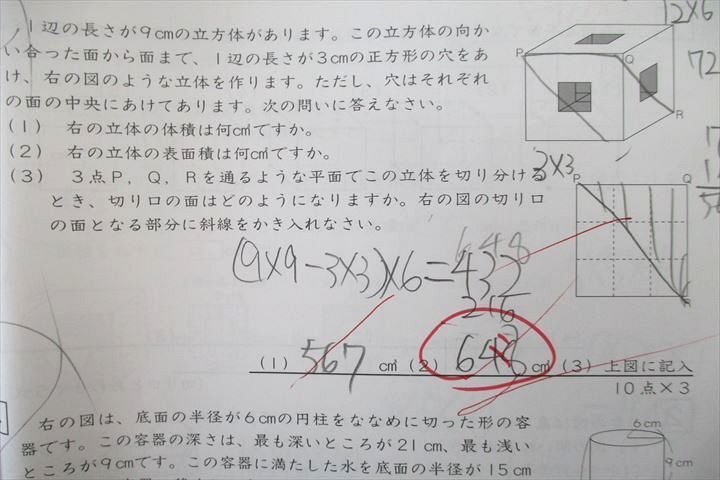 1辺の長さが9cmの立方体があります。この立方体の向か
い合った面から面まで、1辺の長さが3cmの正方形の穴をあ
け、右の図のような立体を作ります。ただし、穴はそれぞれ
の面の中央にあけてあります。次の問いに答えなさい。
(1) 右の立体の体積は何cm³ですか。
(2) 右の立体の表面積は何cm²ですか。
(3) 3点P，Q，Rを通るような平面でこの立体を切り分ける
とき、切り口の面はどのようになりますか。右の図の切り口
の面となる部分に斜線をかき入れなさい。
12×6
72
P
Q
R
3×3
P
Q
R
648
(9×9-3×3)×6=432
216
(1) 567 cm³ (2) 648 cm² (3) 上図に記入
10点×3
右の図は、底面の半径が6cmの円柱をななめに切った形の容
器です。この容器の深さは、最も深いところが21cm、最も浅い
ところが9cmです。この容器に満たした水を底面の半径が15cm
6cm
9cm